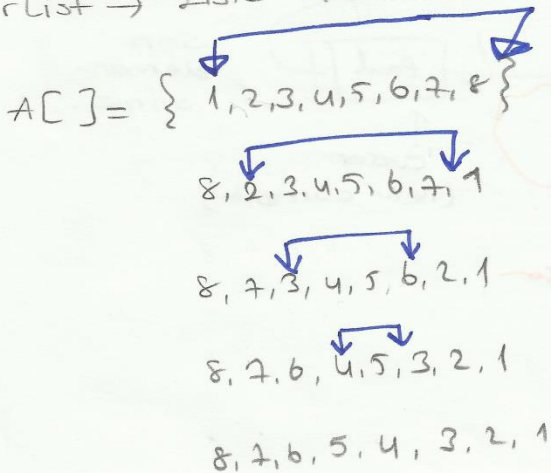 rList →
A[ ] = { 1, 2, 3, 4, 5, 6, 7, 8 }
8, 2, 3, 4, 5, 6, 7, 1
8, 7, 3, 4, 5, 6, 2, 1
8, 7, 6, 4, 5, 3, 2, 1
8, 7, 6, 5, 4, 3, 2, 1